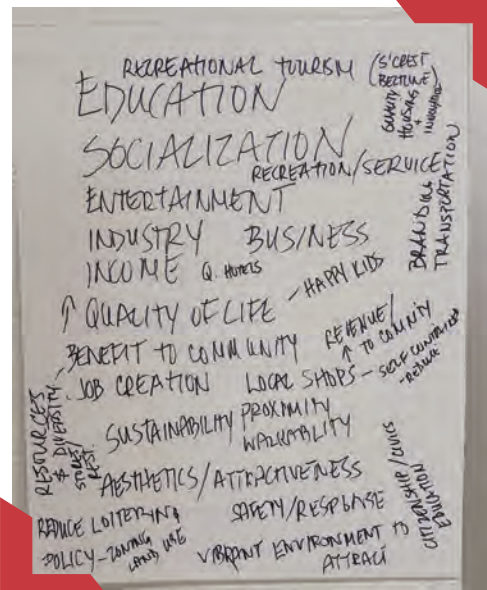 RECREATIONAL TOURISM (S'CREST
BELTLINE)
EDUCATION
QUALITY
HOUSING
+
SOCIALIZATION
RECREATION/SERVICE
BRANDING
TRANSPORTATION
ENTERTAINMENT
INDUSTRY BUSINESS
INCOME Q. HOTELS
↑ QUALITY OF LIFE - HAPPY KIDS
BENEFIT TO COMMUNITY
REVENUE/
↑ TO COMMNITY
JOB CREATION LOCAL SHOPS - SELF CONTAINED
- REDUCE
RESOURCES
& DIVERSITY
STORES/
REST.
SUSTAINABILITY PROXIMITY
WALKABILITY
AESTHETICS/ATTRACTIVENESS
REDUCE LOITERING
SAFETY/RESPONSE
CITIZENSHIP/CIVICS
EDUCATION
POLICY - ZONING
LAND USE
VIBRANT ENVIRONMENT TO
ATTRACT